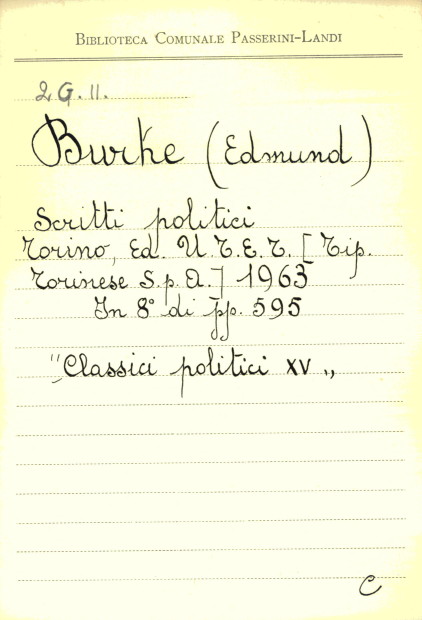 BIBLIOTECA COMUNALE PASSERINI-LANDI
2 G. 11.
Burke (Edmund)
Scritti politici
Torino, Ed. U.T.E.T. [Tip.
Torinese S.p.A.] 1963
In 8° di pp. 595
"Classici politici XV „
C